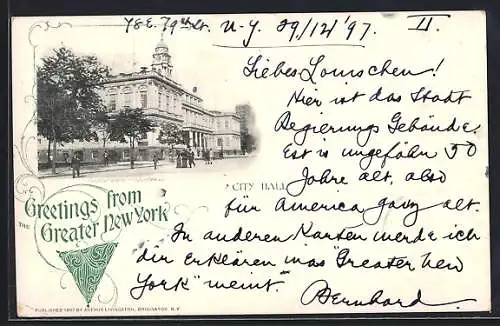 78 E. 79th St. N-Y. 29/12/'97. II.
Liebes Louischen!
Hier ist das Stadt
Regierungs Gebäude.
Es ist ungefähr 50
CITY HALL
Jahre alt, also
für America ganz alt.
Greetings from
THE Greater New York
In anderen Karten werde ich
dir erklären was "Greater New
York" meint.
Bernhard.
PUBLISHED 1897 BY ARTHUR LIVINGSTON, ORIGINATOR, N.Y.